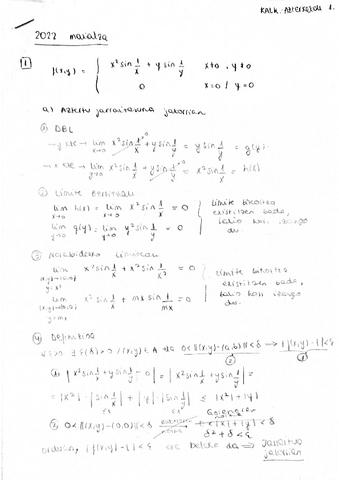 KALK. AZTERKETAK 1.
2022 maiatza
1
f(x,y) = { x² sin 1/x + y sin 1/y x≠0, y≠0
0 x=0 / y=0
a) Aztertu jarraitasuna jatorrian
① DBL
lim x→0 x² sin 1/x + y sin 1/y = y sin 1/y = g(y)
lim y→0 x² sin 1/x + y sin 1/y = x² sin 1/x = h(x)
② Limite berrituak
lim x→0 h(x) = lim x→0 x² sin 1/x = 0
lim y→0 g(y) = lim y→0 y² sin 1/y = 0
Limite bikoitza existitzen bada, balio hori izango du.
③ Norabidezko limiteak
lim (x,y)→(0,0) y=x² x² sin 1/x + x² sin 1/x² = 0
lim (x,y)→(0,0) y=mx x² sin 1/x + mx sin 1/mx = 0
Limite bikoitza existitzen bada, balio hori izango du.
④ Definizioa
0<||(x,y)-(a,b)||<δ → |f(x,y)-l|<ε
|x² sin 1/x + y sin 1/y - 0| = |x² sin 1/x + y sin 1/y| =
= |x²|·|sin 1/x| + |y|·|sin 1/y| ≤ |x²|+|y|
② 0<||(x,y)-(0,0)||<δ
δ²+δ<ε
orduan, |f(x,y)-l|<ε beteko da ⇒ Jarraitua jatorrian